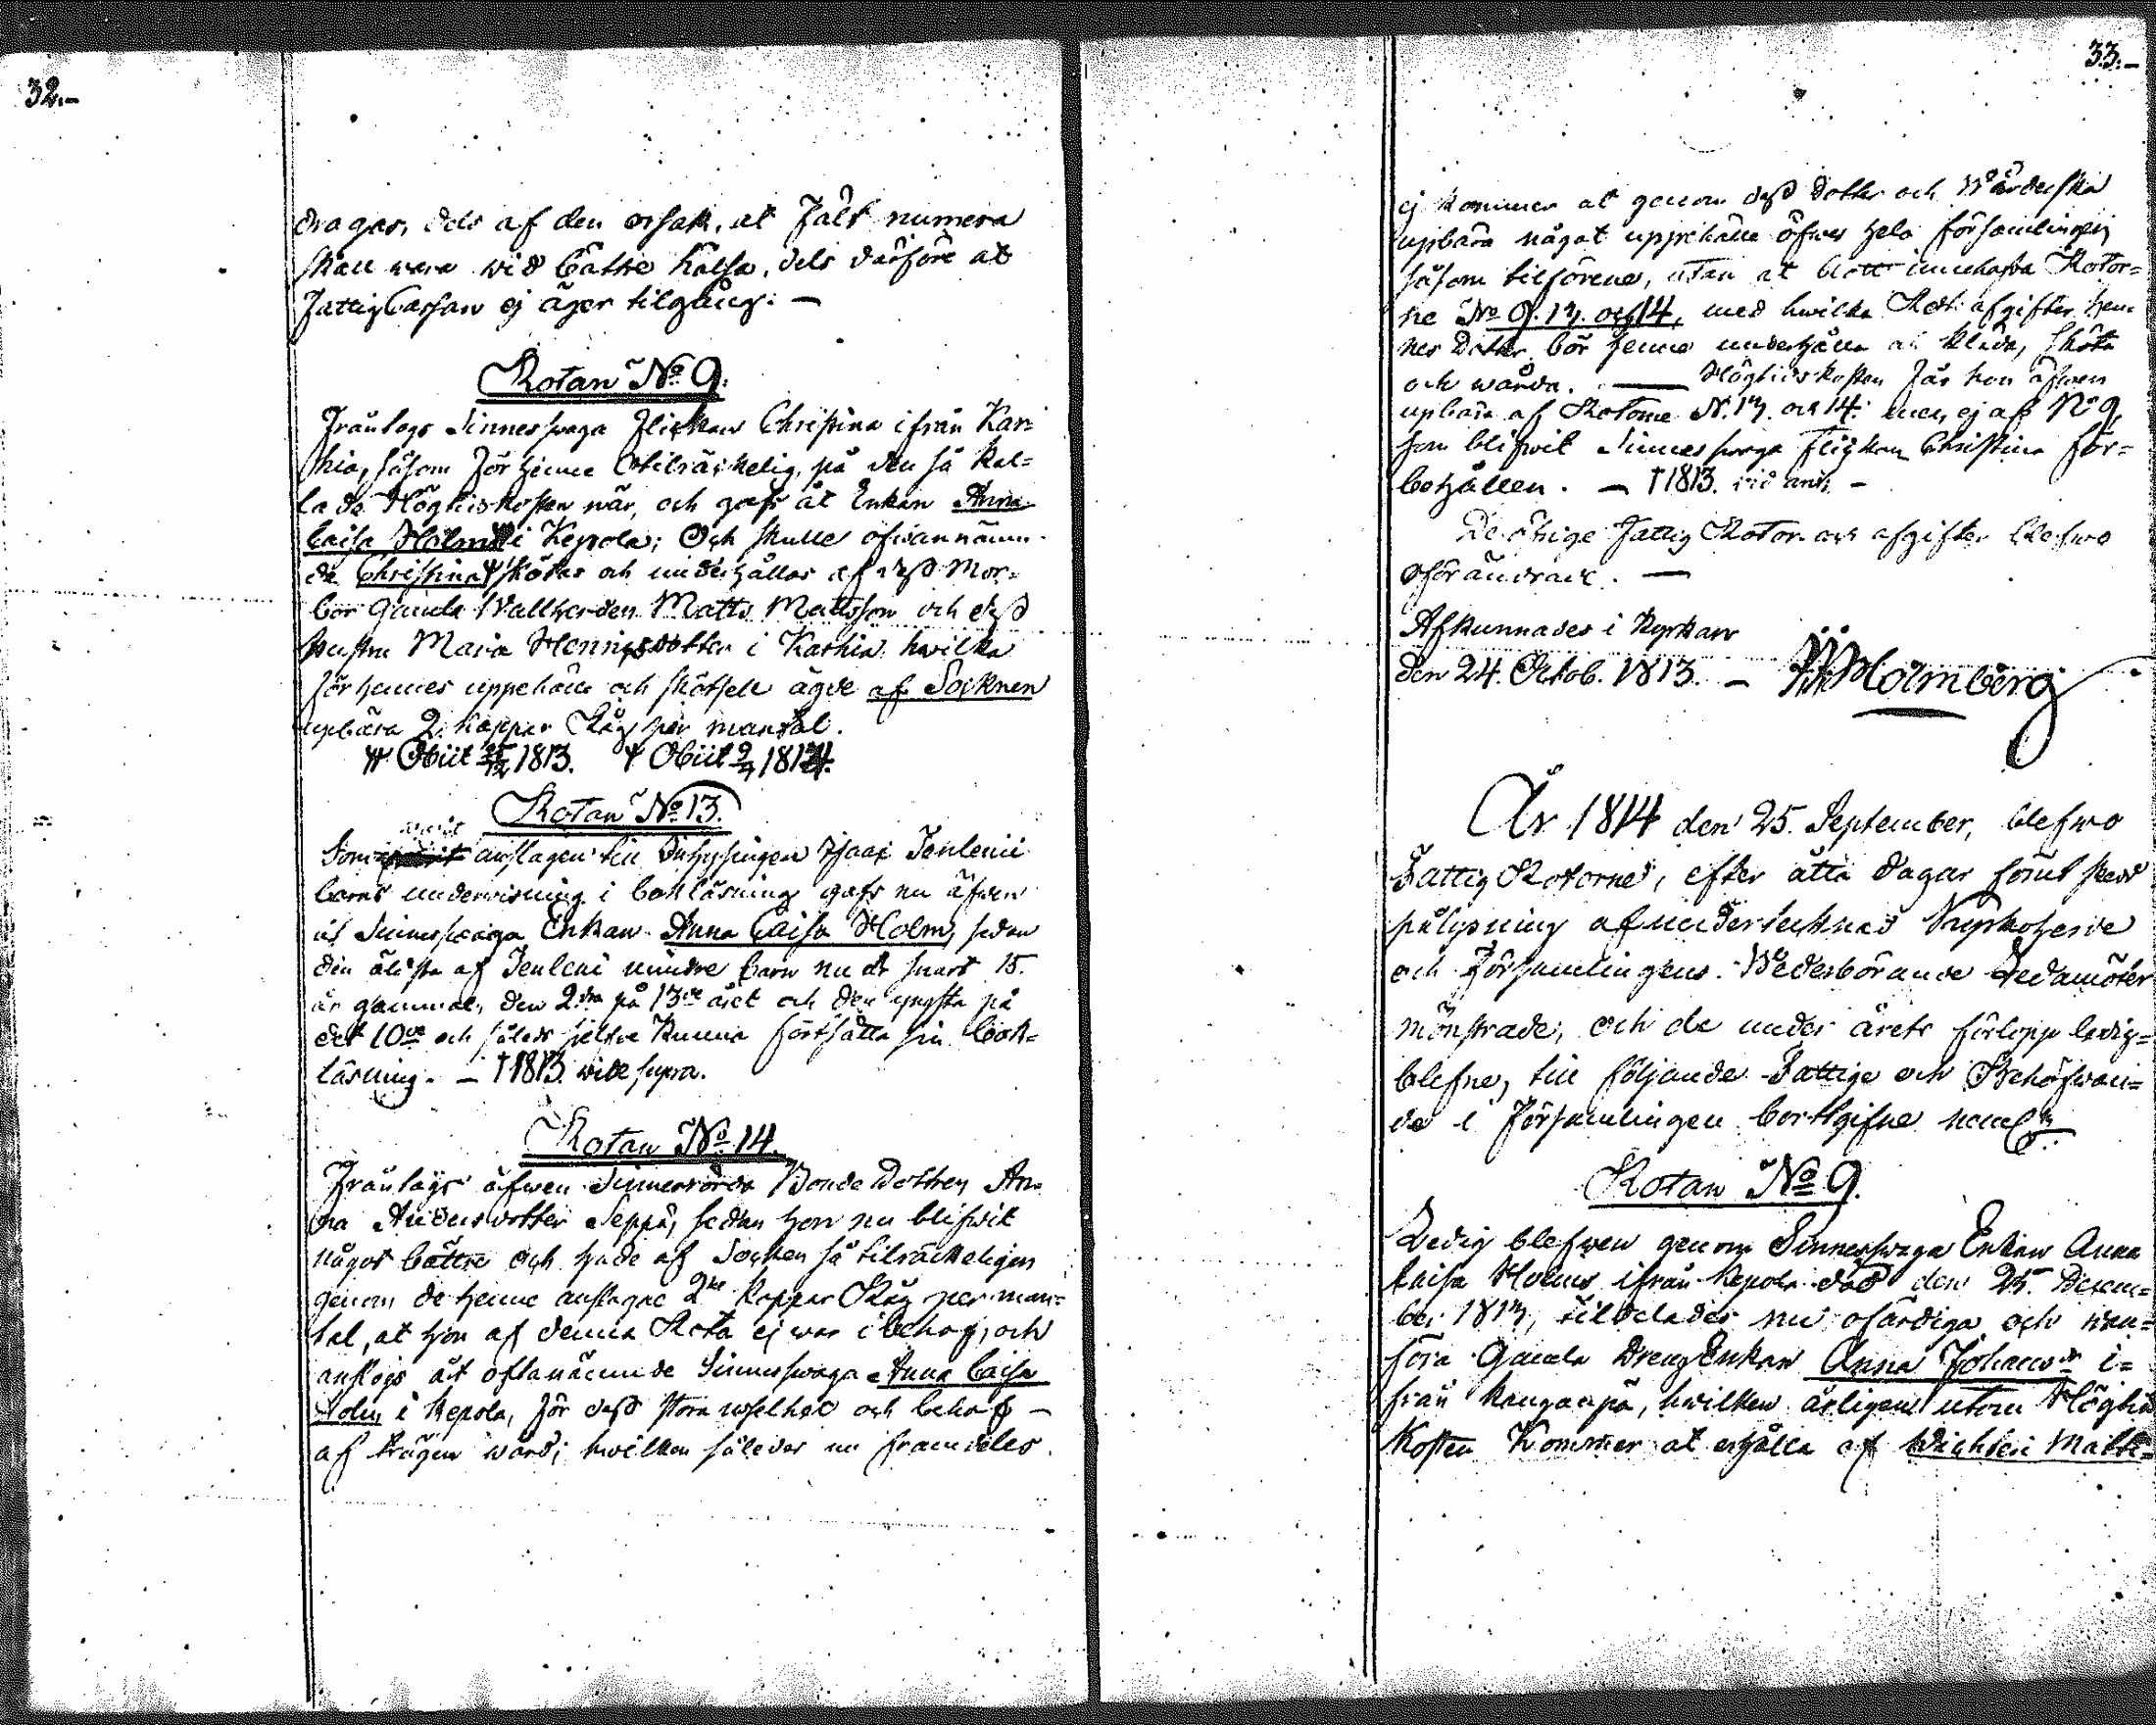 32.-
dragas, dels af den orsak, at Fält numera
skall vara wid bättre hälsa, dels därföre at
Fattig Cassan ej äger tilgång. -
Rotan No 9.
Frånlags Sinnessvaga Flickan Christina ifrån Kar-
hia, såsom för henne otilräckelig på den så kal-
lade Högtidskosten när, och gafs åt Enkan Anna
Caisa Holm i Kepola; Och skulle ofwannämn-
de Christina skötas och underhållas af dess Mor-
bror Gamla Wallherden Matts Mattsson och dess
hustru Maria Henricsdotter i Karhia, hwilka
för hennes uppehälle och skötsell ägde af Socknen
upbära 2. kappar Råg per mantal.
Obiit 25/12 1813. Obiit 9/4 1814.
Rotan No 13.
warit
Som anslagen till Inhysingen Isaac Jenlenii
barns underwisning i bokläsning gafs nu äfwen
åt Sinnessvaga Enkan Anna Caisa Holm, sedan
den äldsta af Jenleni mindre barn nu är snart 15.
år gammal, den 2dra på 13de året och den yngsta på
det 10de och således sjelfve kunna fortsätta sin bok-
läsning. - † 1813. vide supra.
Rotan No 14.
Frånlags äfwen Sinnesrörda Bonde Dottren An-
na Andersdotter Seppä, sedan hon nu blifwit
något bättre och hade af Socknen så tilräckeligen
genom de henne anslagne 2ne Kappar Råg per man-
tal, at hon af denna Rota ej war i behof, och
anslogs åt oftanämnde Sinnessvaga Anna Caisa
Holm i Kepola, för dess stora uselhet och behof -
af trägen wård; hwilken således nu framdeles
33.-
ej kommer at genom dess dotter och Wårderska
upbära något uppehälle öfwer hela församlingen
såsom tilförene, utan at blott innehafva Rotor-
ne No 9. 13. och 14, med hwilka Rote afgifter hen-
nes Dotter bör henne underhålla, kläda, sköta
och wårda. - Högtidskosten får hon äfwen
upbära af Rotorne N. 13. och 14. men ej af No 9,
som blifwit Sinnessvaga Flickan Christina för-
behållen. - † 1813. vid ant. -
De öfrige Fattig Rotor och afgifter blefwo
oförändrade. -
Afkunnades i Kyrkan
den 24. Octob. 1813. - Holmberg
År 1814 den 25. September, blefwo
Fattig Rotorne, efter åtta dagar förut skedd
pålysning af undertecknad Kyrkoherde
och Församlingens Wederbörande Ledamöter
mönstrade, och de under årets förlopp ledig-
blefne, till följande Fattige och Behöfwan-
de i Församlingen bortgifne neml.
Rotan No 9.
Ledig blefwen genom Sinnessvaga Enkan Anna
Caisa Holms ifrån Kepola död den 25. Decem-
ber 1813, tildelades nu ofärdiga och wan-
föra Gamla DrengEnkan Anna Johansdr i-
från Kangaspä, hwilken årligen utom Högtids
Kosten Kommer at erhålla af Wichteri Matts-